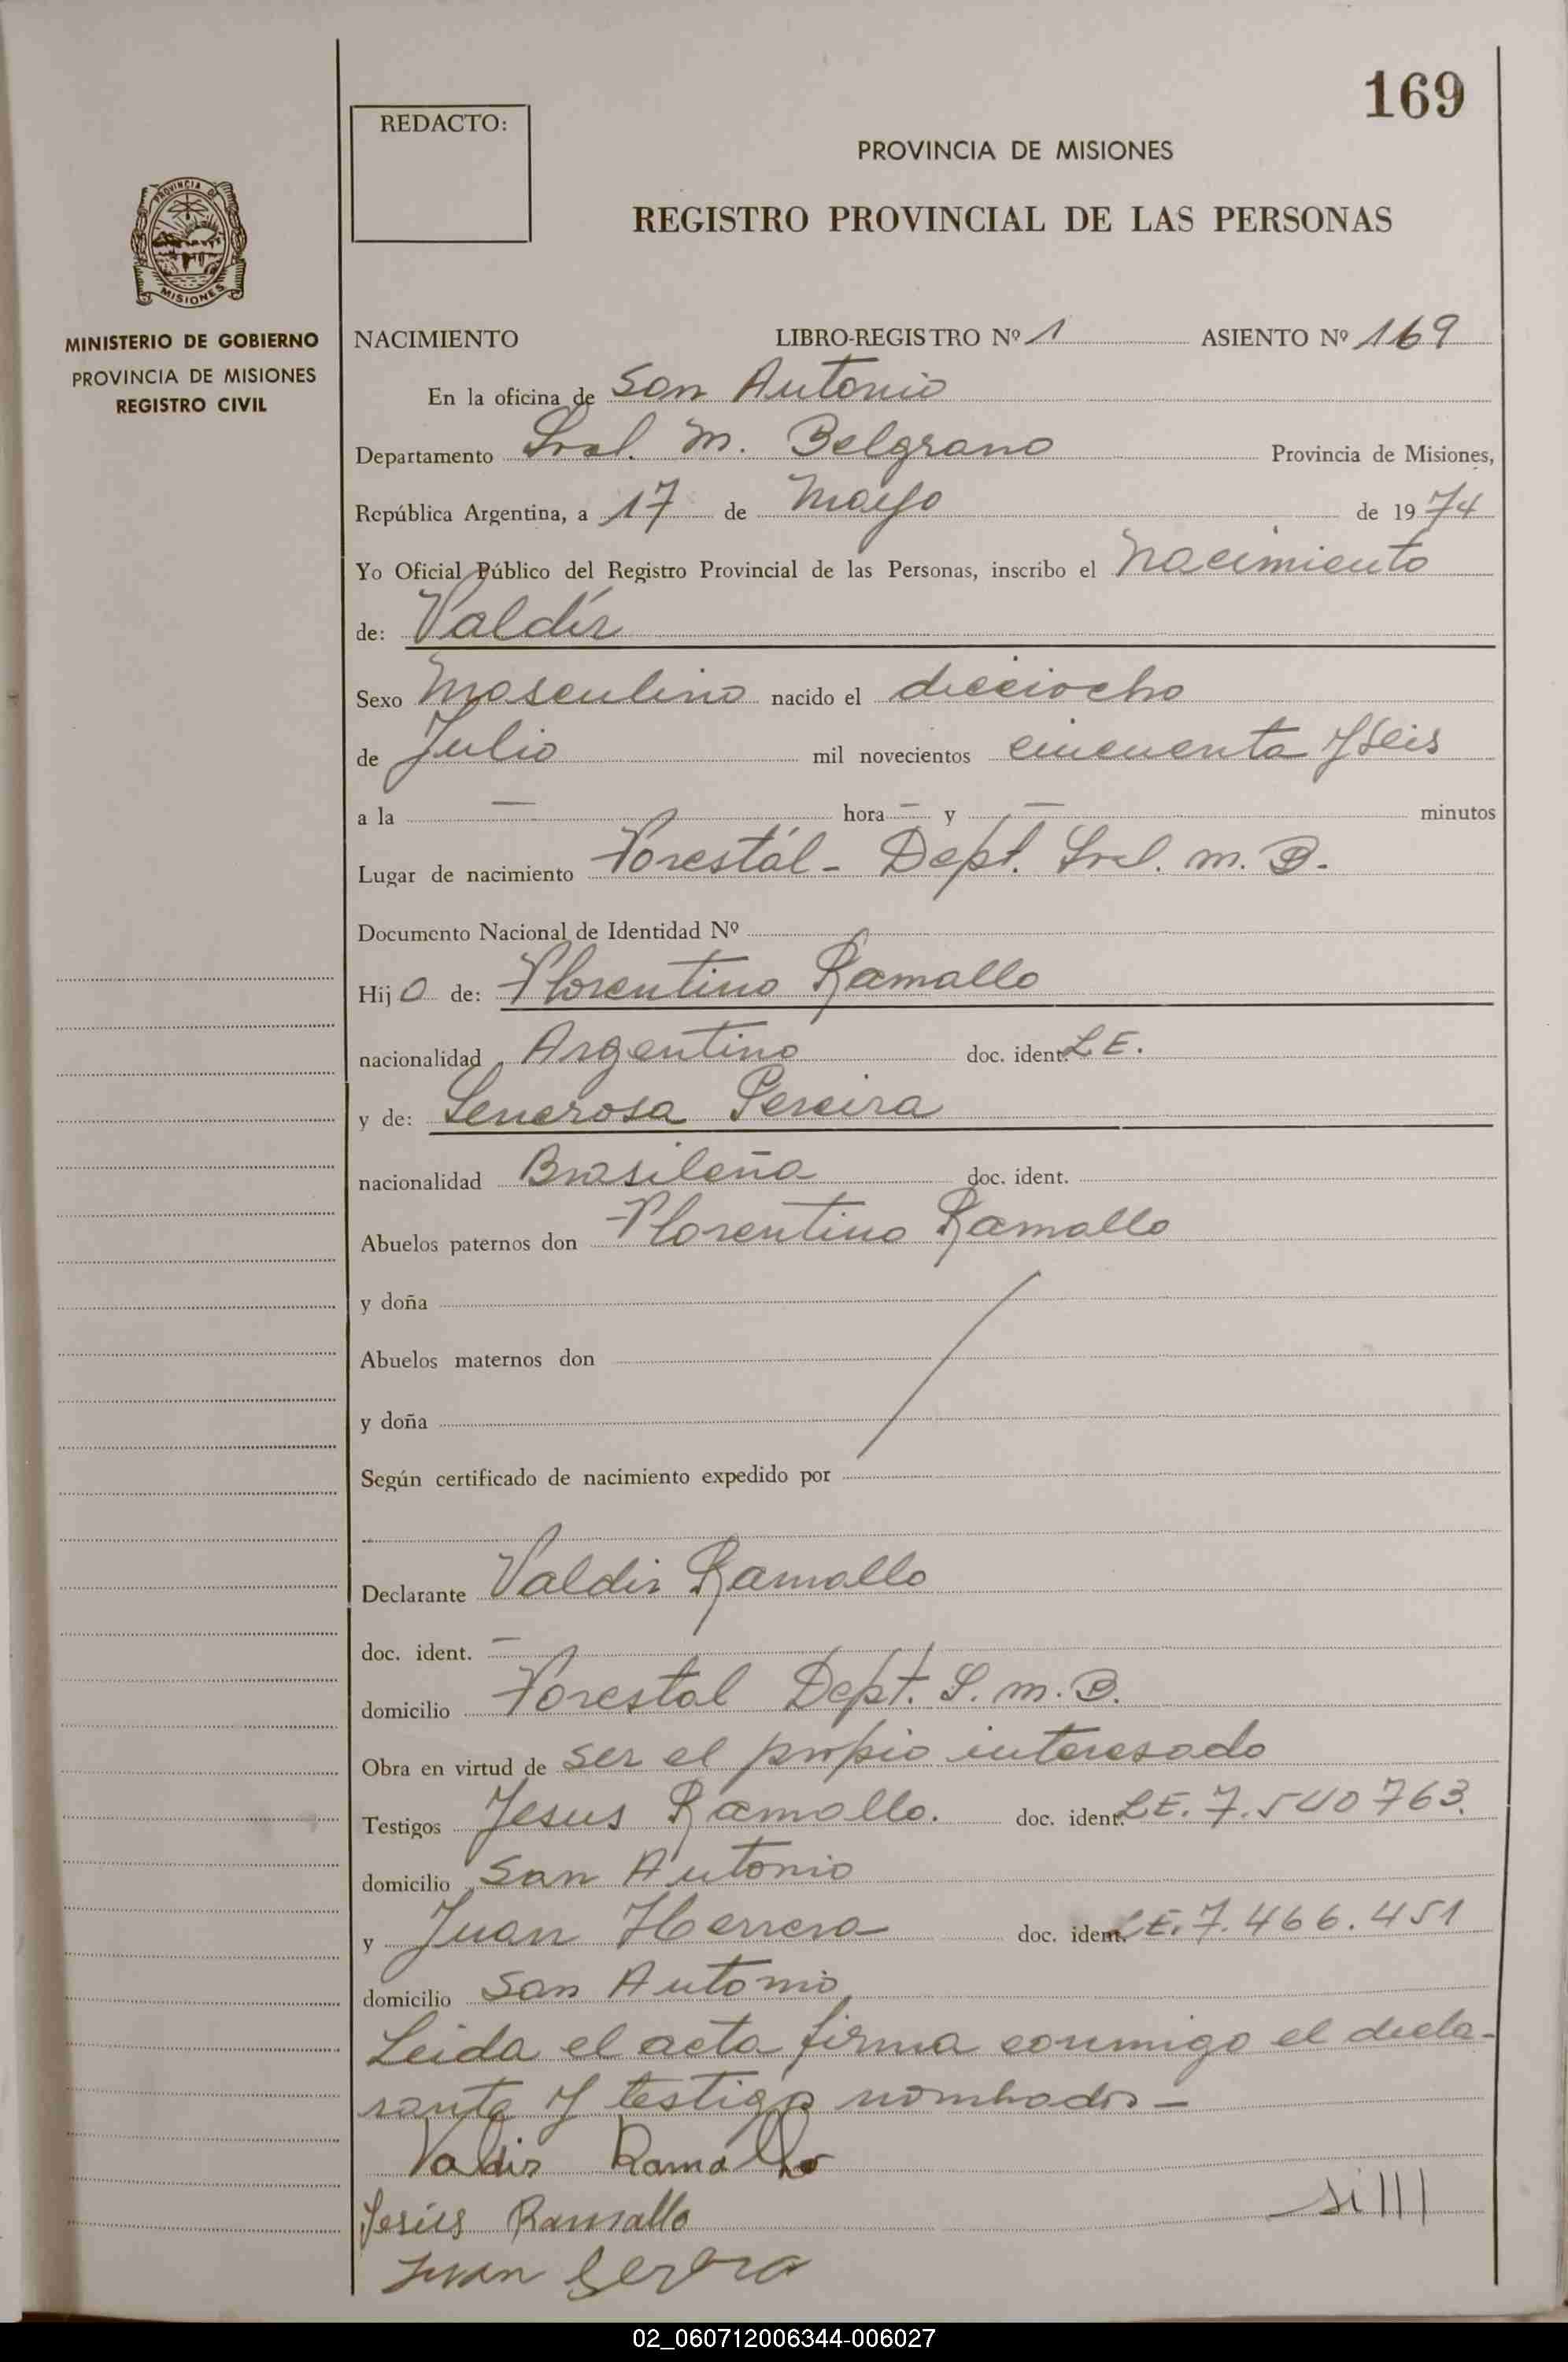 169
REDACTO:
PROVINCIA DE MISIONES
REGISTRO PROVINCIAL DE LAS PERSONAS
PROVINCIA DE
MISIONES
MINISTERIO DE GOBIERNO
PROVINCIA DE MISIONES
REGISTRO CIVIL
NACIMIENTO LIBRO-REGISTRO Nº 1 ASIENTO Nº 169
En la oficina de San Antonio
Departamento Gral. M. Belgrano Provincia de Misiones,
República Argentina, a 17 de Mayo de 1974
Yo Oficial Público del Registro Provincial de las Personas, inscribo el Nacimiento
de: Valdír
Sexo Masculino nacido el dieciocho
de Julio mil novecientos cincuenta y seis
a la — hora — y — minutos
Lugar de nacimiento Forestál - Dept. Gral. M. B.
Documento Nacional de Identidad Nº
Hijo de: Florentino Ramallo
nacionalidad Argentino doc. ident. L.E.
y de: Generosa Pereira
nacionalidad Brasileña doc. ident.
Abuelos paternos don Florentino Ramallo
y doña
Abuelos maternos don
y doña
Según certificado de nacimiento expedido por
Declarante Valdir Ramallo
doc. ident. —
domicilio Forestal Dept. G. M. B.
Obra en virtud de ser el propio interesado
Testigos Jesus Ramallo. doc. ident. L.E. 7.540763.
domicilio San Antonio
y Juan Herrera doc. ident. L.E. 7.466.451
domicilio San Antonio
Leida el acta firma conmigo el decla-
rante y testigo nombrados -
Valdir Ramallo
Jesús Ramallo
Juan
02_060712006344-006027